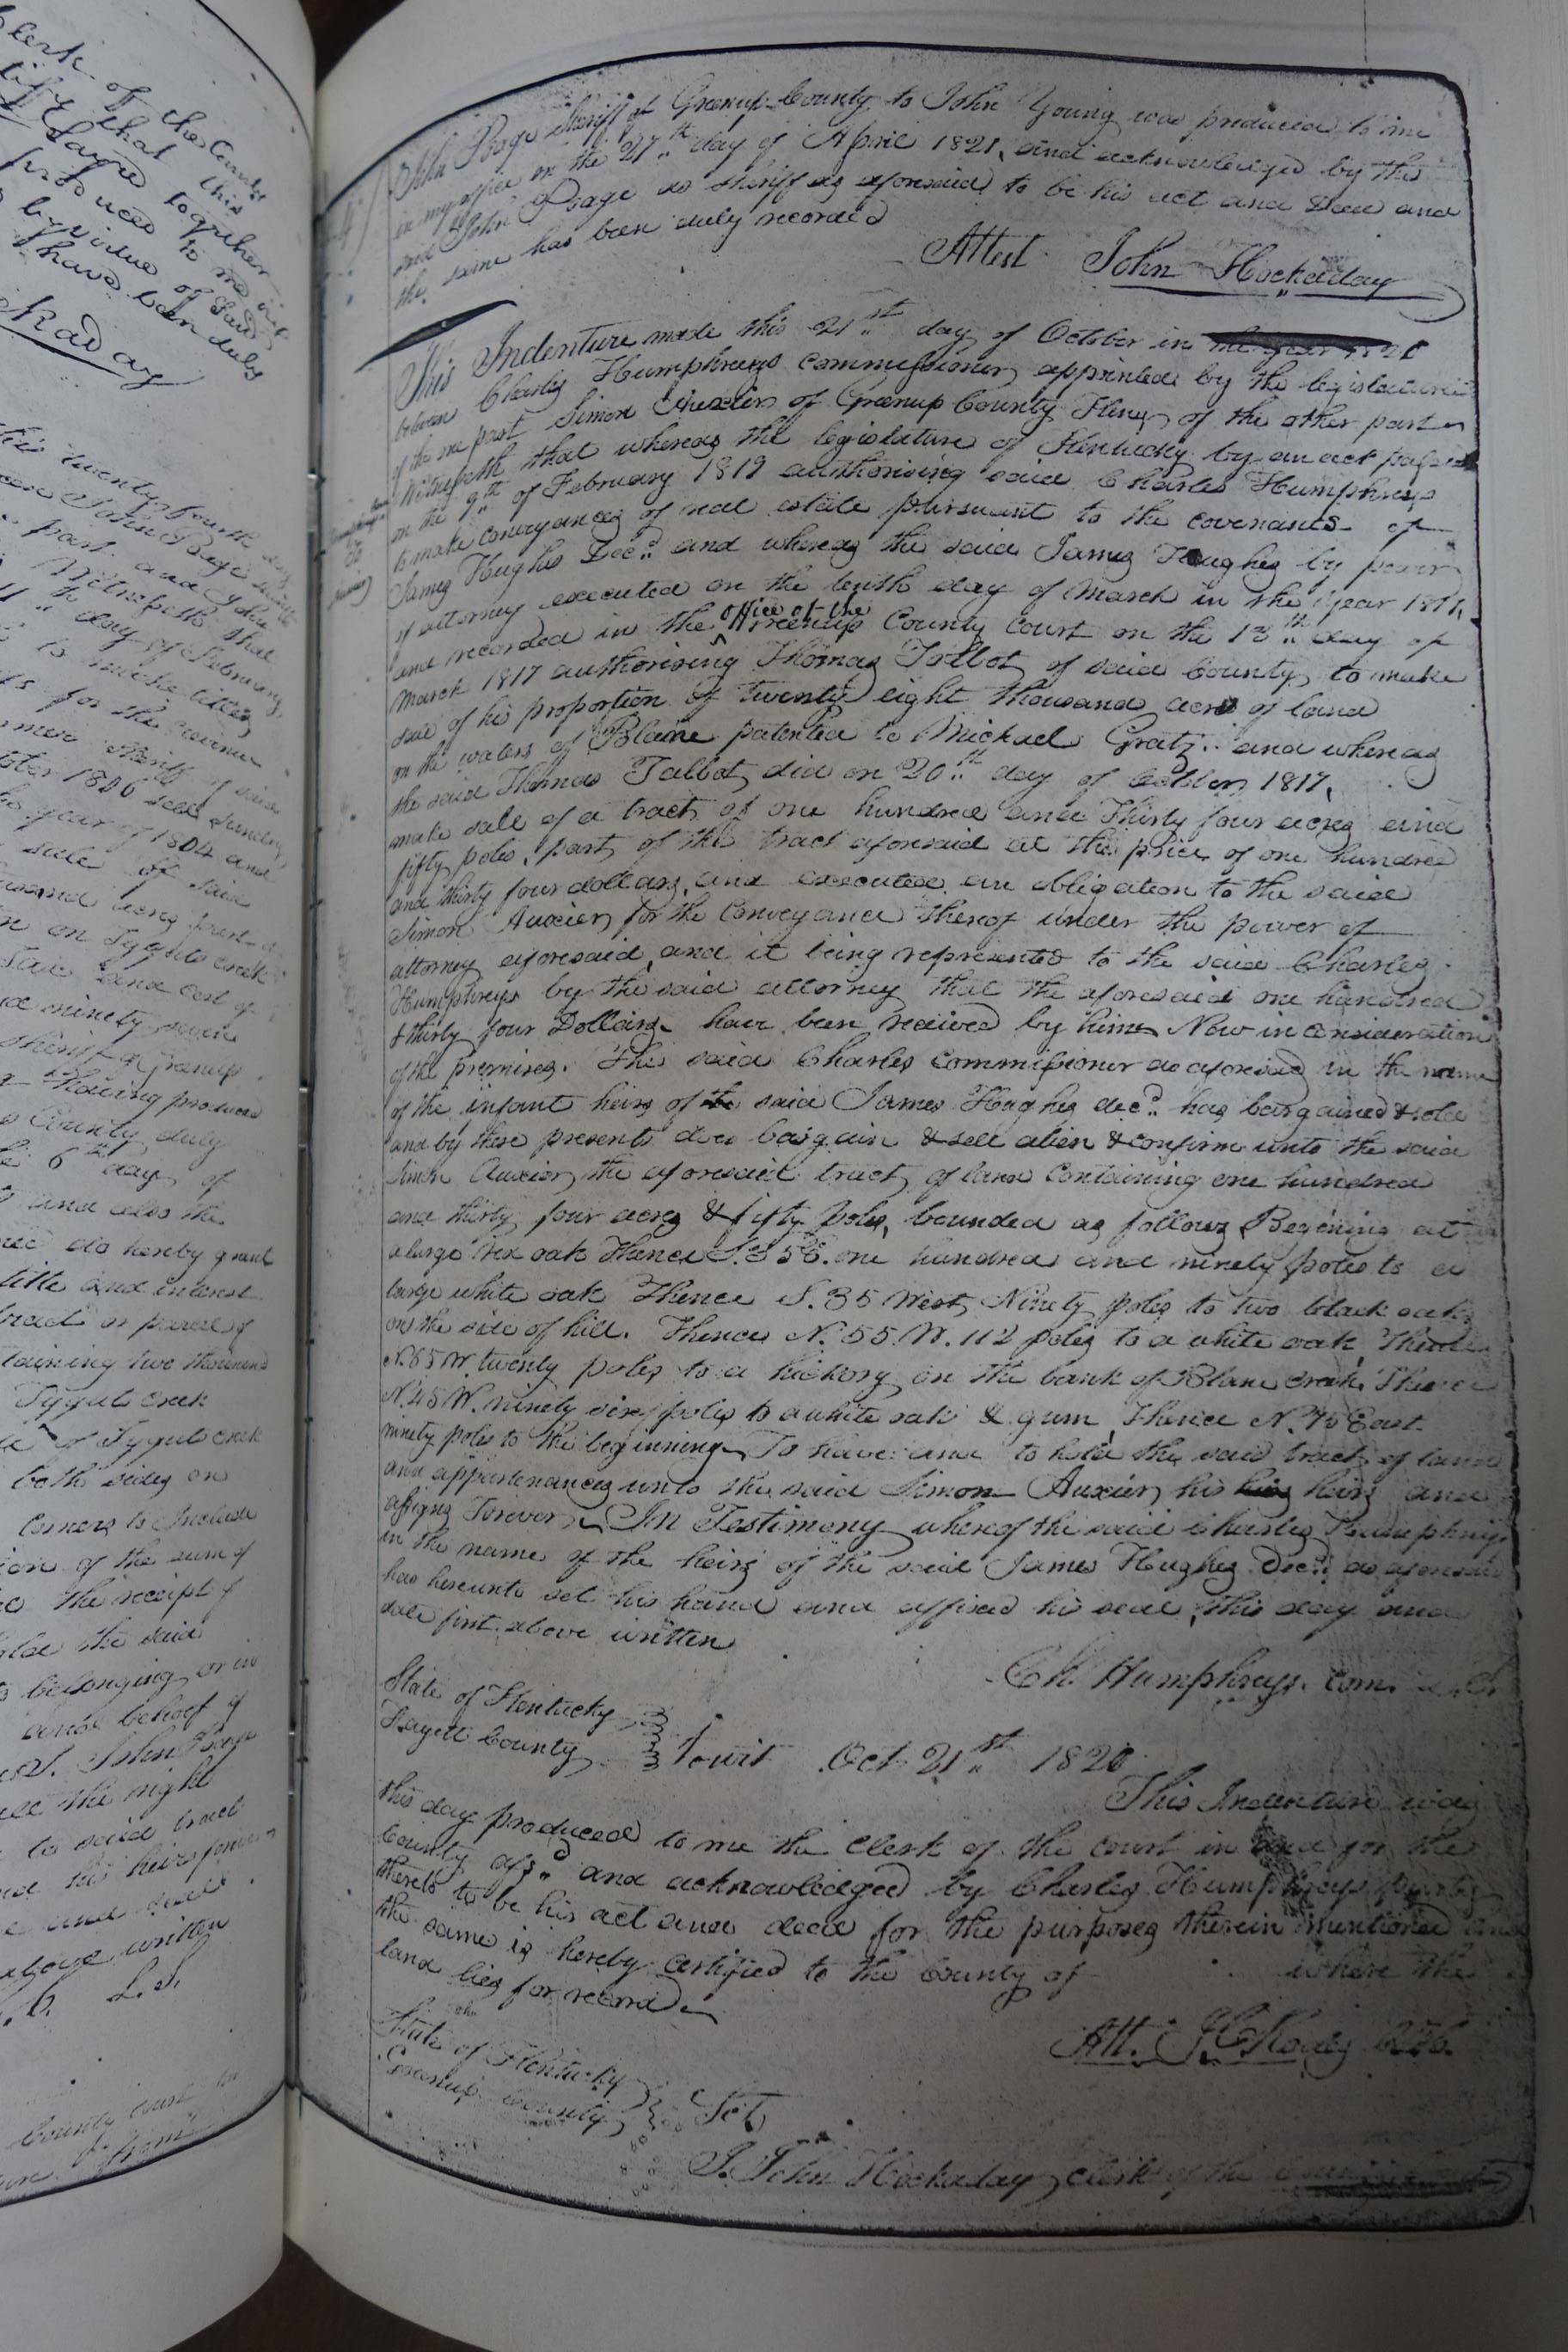 Clerk of the County
that this
Sayre together
produced to me in
by virtue of said
have been duly
Kaday
this twenty fourth day
John Poage
part and John
Witnesseth that
day of February
to make titles
for the revenue
Sheriff of said
1806 sold sundry
year of 1804 and
sale of said
acres part of
on Tygerts creek
and cost of
ninety seven
sheriff of Greenup
having produced
County duly
6th day of
and also the
do hereby grant
title and interest
tract or parcel of
taining two thousand
Tyguts creek
of Tyguts creek
both sides on
Corners to Include
ion of the sum of
the receipt of
the said
belonging or in
and behoof of
John Poage
the right
to said tract
his heirs forever
and seal
above written
L.S.
County court
from
John Poage Sheriff of Greenup County to John Young was produced to me
in my office on the 27th day of April 1821, and acknowledged by the
said John Poage as sheriff as aforesaid to be his act and Deed and
the same has been duly recorded
Attest John Hockaday
This Indenture made this 21st day of October in the year 1820
between Charles Humphreys commissioner appointed by the legislature
of the one part Simon Auxier of Greenup County Kenty of the other part
Witnesseth that whereas the legislature of Kentucky by an act passed
on the 9th of February 1819 authorising said Charles Humphreys
to make conveyances of real estate pursuant to the covenants of
James Hughes Decd. and whereas the said James Hughes by power
of attorney executed on the tenth day of March in the year 1817,
and recorded in the office of the Greenup County Court on the 13th day of
March 1817 authorising Thomas Talbot of said County to make
sale of his proportion of twenty eight thousand acres of land
on the waters of Blaine patented to Michael Gratz. and whereas
the said Thomas Talbot did on 20th day of October 1817,
make sale of a tract of one hundred and Thirty four acres and
fifty poles, part of the tract aforesaid at the price of one hundred
and thirty four dollars, and executed an obligation to the said
Simon Auxier for the Conveyance thereof under the power of
attorney aforesaid, and it being represented to the said Charles
Humphreys by the said attorney that the aforesaid one hundred
& thirty four Dollars have been received by him Now in consideration
of the premises. The said Charles commissioner as aforesaid in the name
of the infant heirs of the said James Hughes decd. has bargained & sold
and by these presents does bargain & sell alien & confirm unto the said
Simon Auxier the aforesaid tract of land Containing one hundred
and thirty four acres & fifty poles, bounded as follows Begening at
a large red oak Thence S. 55 E. one hundred and ninety poles to a
large white oak Thence S. 35 West Ninety poles to two black oaks
on the side of hill. Thence N. 55 W. 112 poles to a white oak Thence
N. 65 W. twenty poles to a hickory on the bank of Blane creek, Thence
N. 45 W. ninety six poles to a white oak & gum, Thence N. 75 East
ninety poles to the beginning To have and to hold the said tract of land
and appertenances unto the said Simon Auxier his heirs and
assigns Forever In Testimony whereof the said Charles Humphreys
in the name of the heirs of the said James Hughes Decd. as aforesaid
has hereunto set his hand and affixed his seal, this day and
date first above written
Ch. Humphreys. Com.
State of Kentucky
Fayette County
Towit Oct 21st 1820
This Indenture was
this day produced to me the Clerk of the Court in and for the
County afsd. and acknowledged by Charles Humphreys party
thereto to be his act and deed for the purposes therein mentioned and
the same is hereby certified to the County of where the
land lies for record
Att.
State of Kentucky
Greenup County
Sct
I, John Hockaday, clerk of the